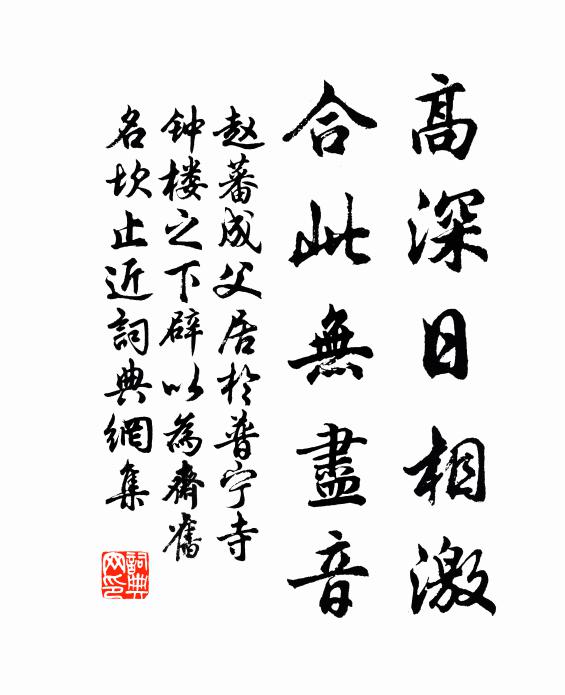 高深日相激
合此無盡音
赵蕃成父居於普宁寺
钟楼之下辟以為齋舊
名坎止近詞典網集
詞典网印